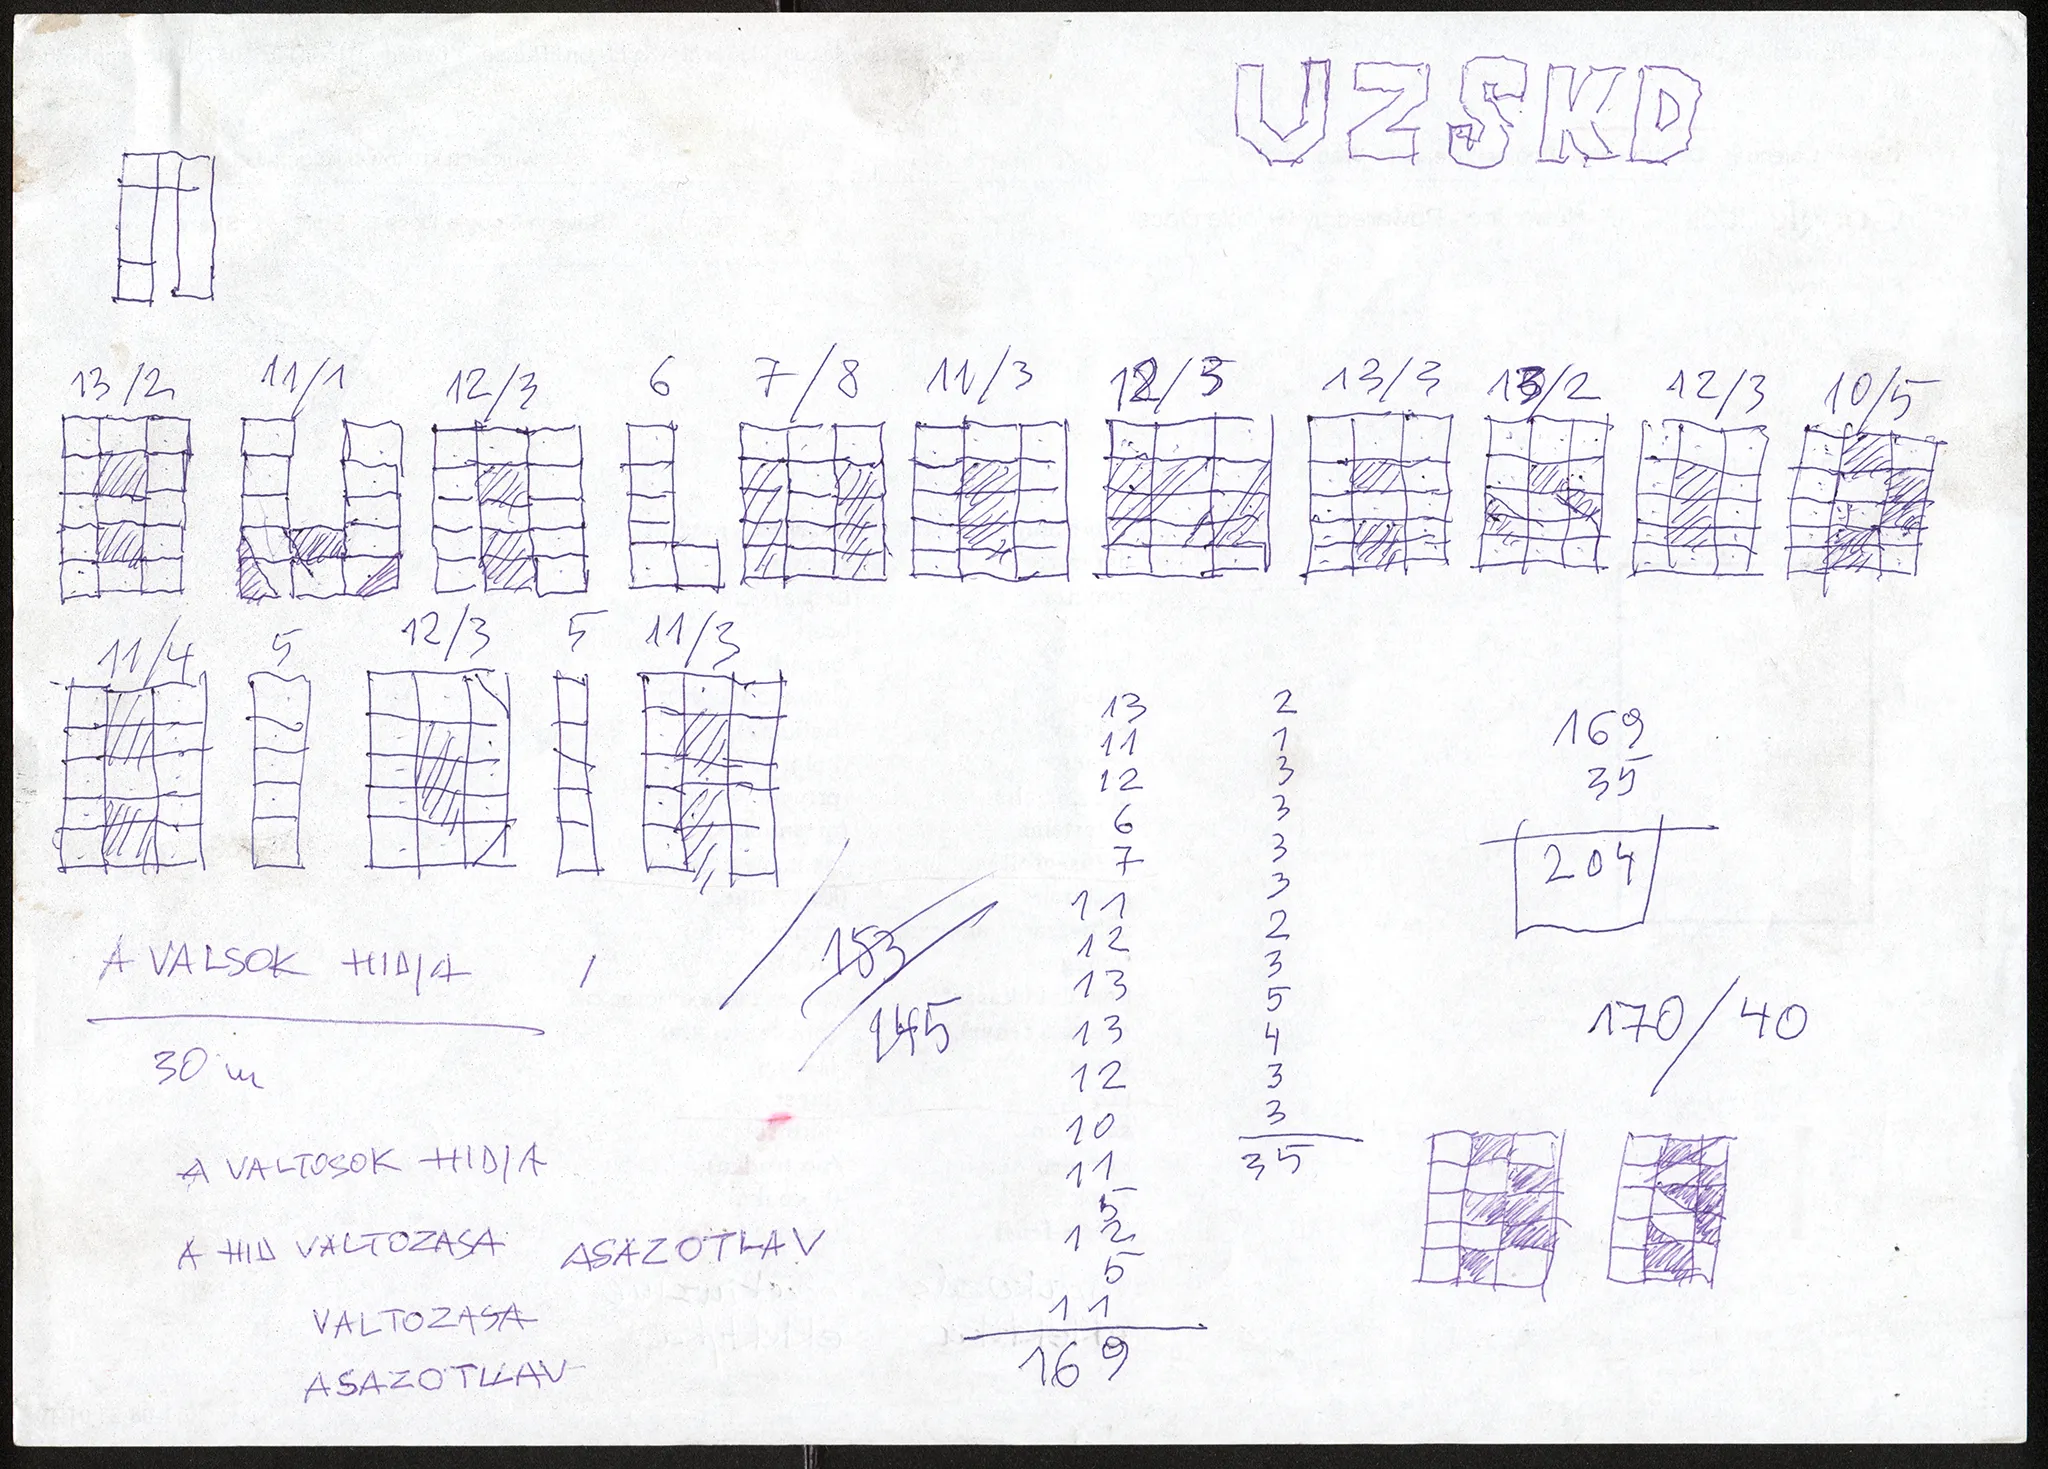 UZSKD
13/2 11/1 12/3 6 7/8 11/3 12/3 13/3 13/2 12/3 10/5
11/4 5 12/3 5 11/3
13 2
11 1
12 3
6 3
7 3
11 3
12 2
13 3
13 5
12 4
10 3
11 3
5 35
12
5
11
169
169
35
204
170/40
153
145
A VALSOK HIDJA
30 m
A VALTOSOK HIDJA
A HID VALTOZASA ASAZOTLAV
VALTOZASA
ASAZOTLAV